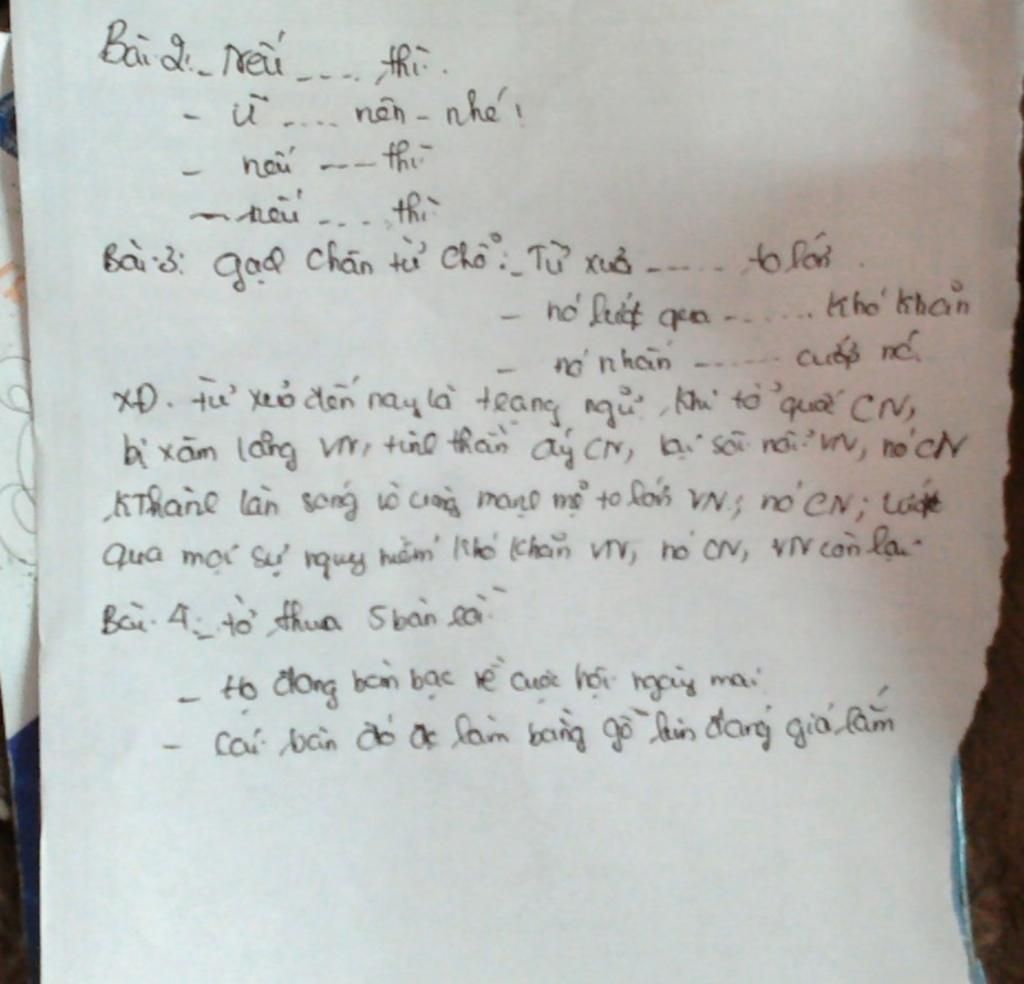 Bài 2: - Nếu ...., thì.
- Vì .... nên - nhé!
- nếu ---- thì
- nếu .... thì
Bài 3: gạch chân từ chỗ: - Từ xưa ...... to lớn.
- nó lướt qua ....... khó khăn
- nó nhấn ....... cướp nc.
XĐ. từ xưa đến nay là trạng ngữ, khi tổ quốc CN,
bị xâm lăng VN, tinh thần ấy CN, lại sôi nổi VN, nó CN
kThành làn sóng vô cùng mạnh mẽ to lớn VN; nó CN; lướt
qua mọi sự nguy hiểm khó khăn VN, nó CN, VN còn lại.
Bài 4: - tớ thua 5 bàn rồi
- Họ đang bàn bạc về cuộc hội ngày mai
- Cái bàn đó đc làm bằng gỗ lim đáng giá lắm